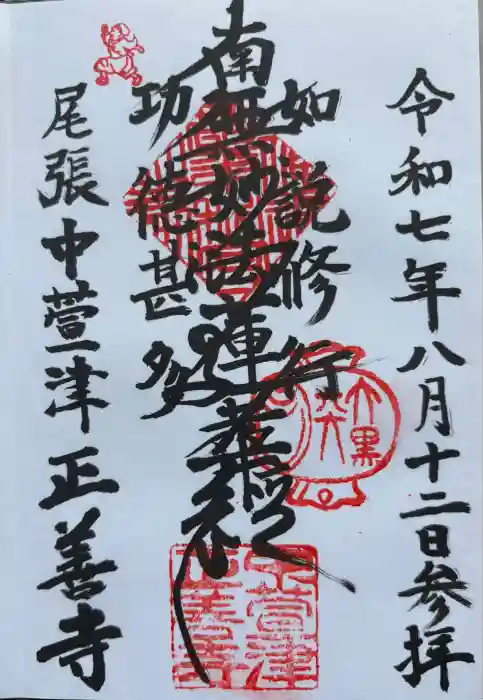 令和七年八月十二日参拝
如説修行
南無妙法蓮華経
功徳甚多
尾張中萱津正善寺
大黒
中萱津
正善寺